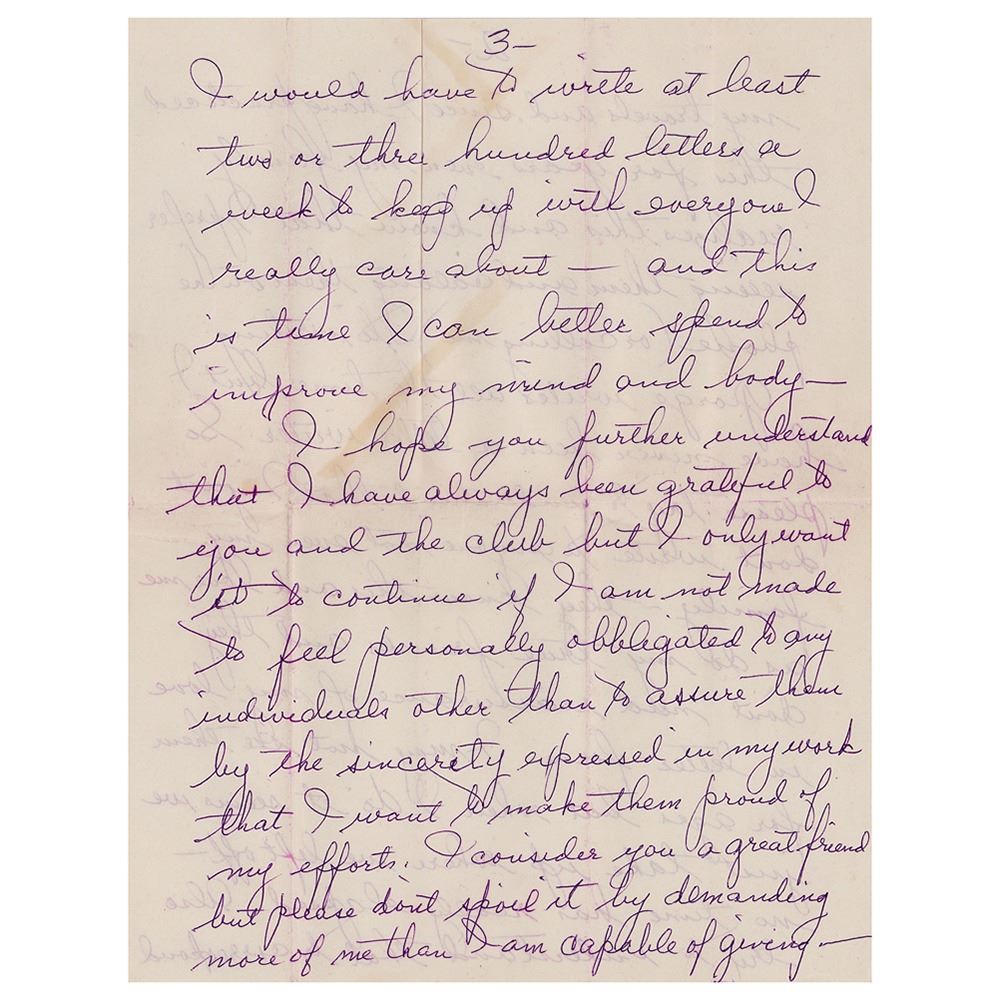 3-
I would have to write at least
two or three hundred letters a
week to keep up with everyone I
really care about — and this
is time I can better spend to
improve my mind and body—
I hope you further understand
that I have always been grateful to
you and the club but I only want
it to continue if I am not made
to feel personally obbligated to any
individuals other than to assure them
by the sincerity expressed in my work
that I want to make them proud of
my efforts. I consider you a great friend
but please don't spoil it by demanding
more of me than I am capable of giving.—